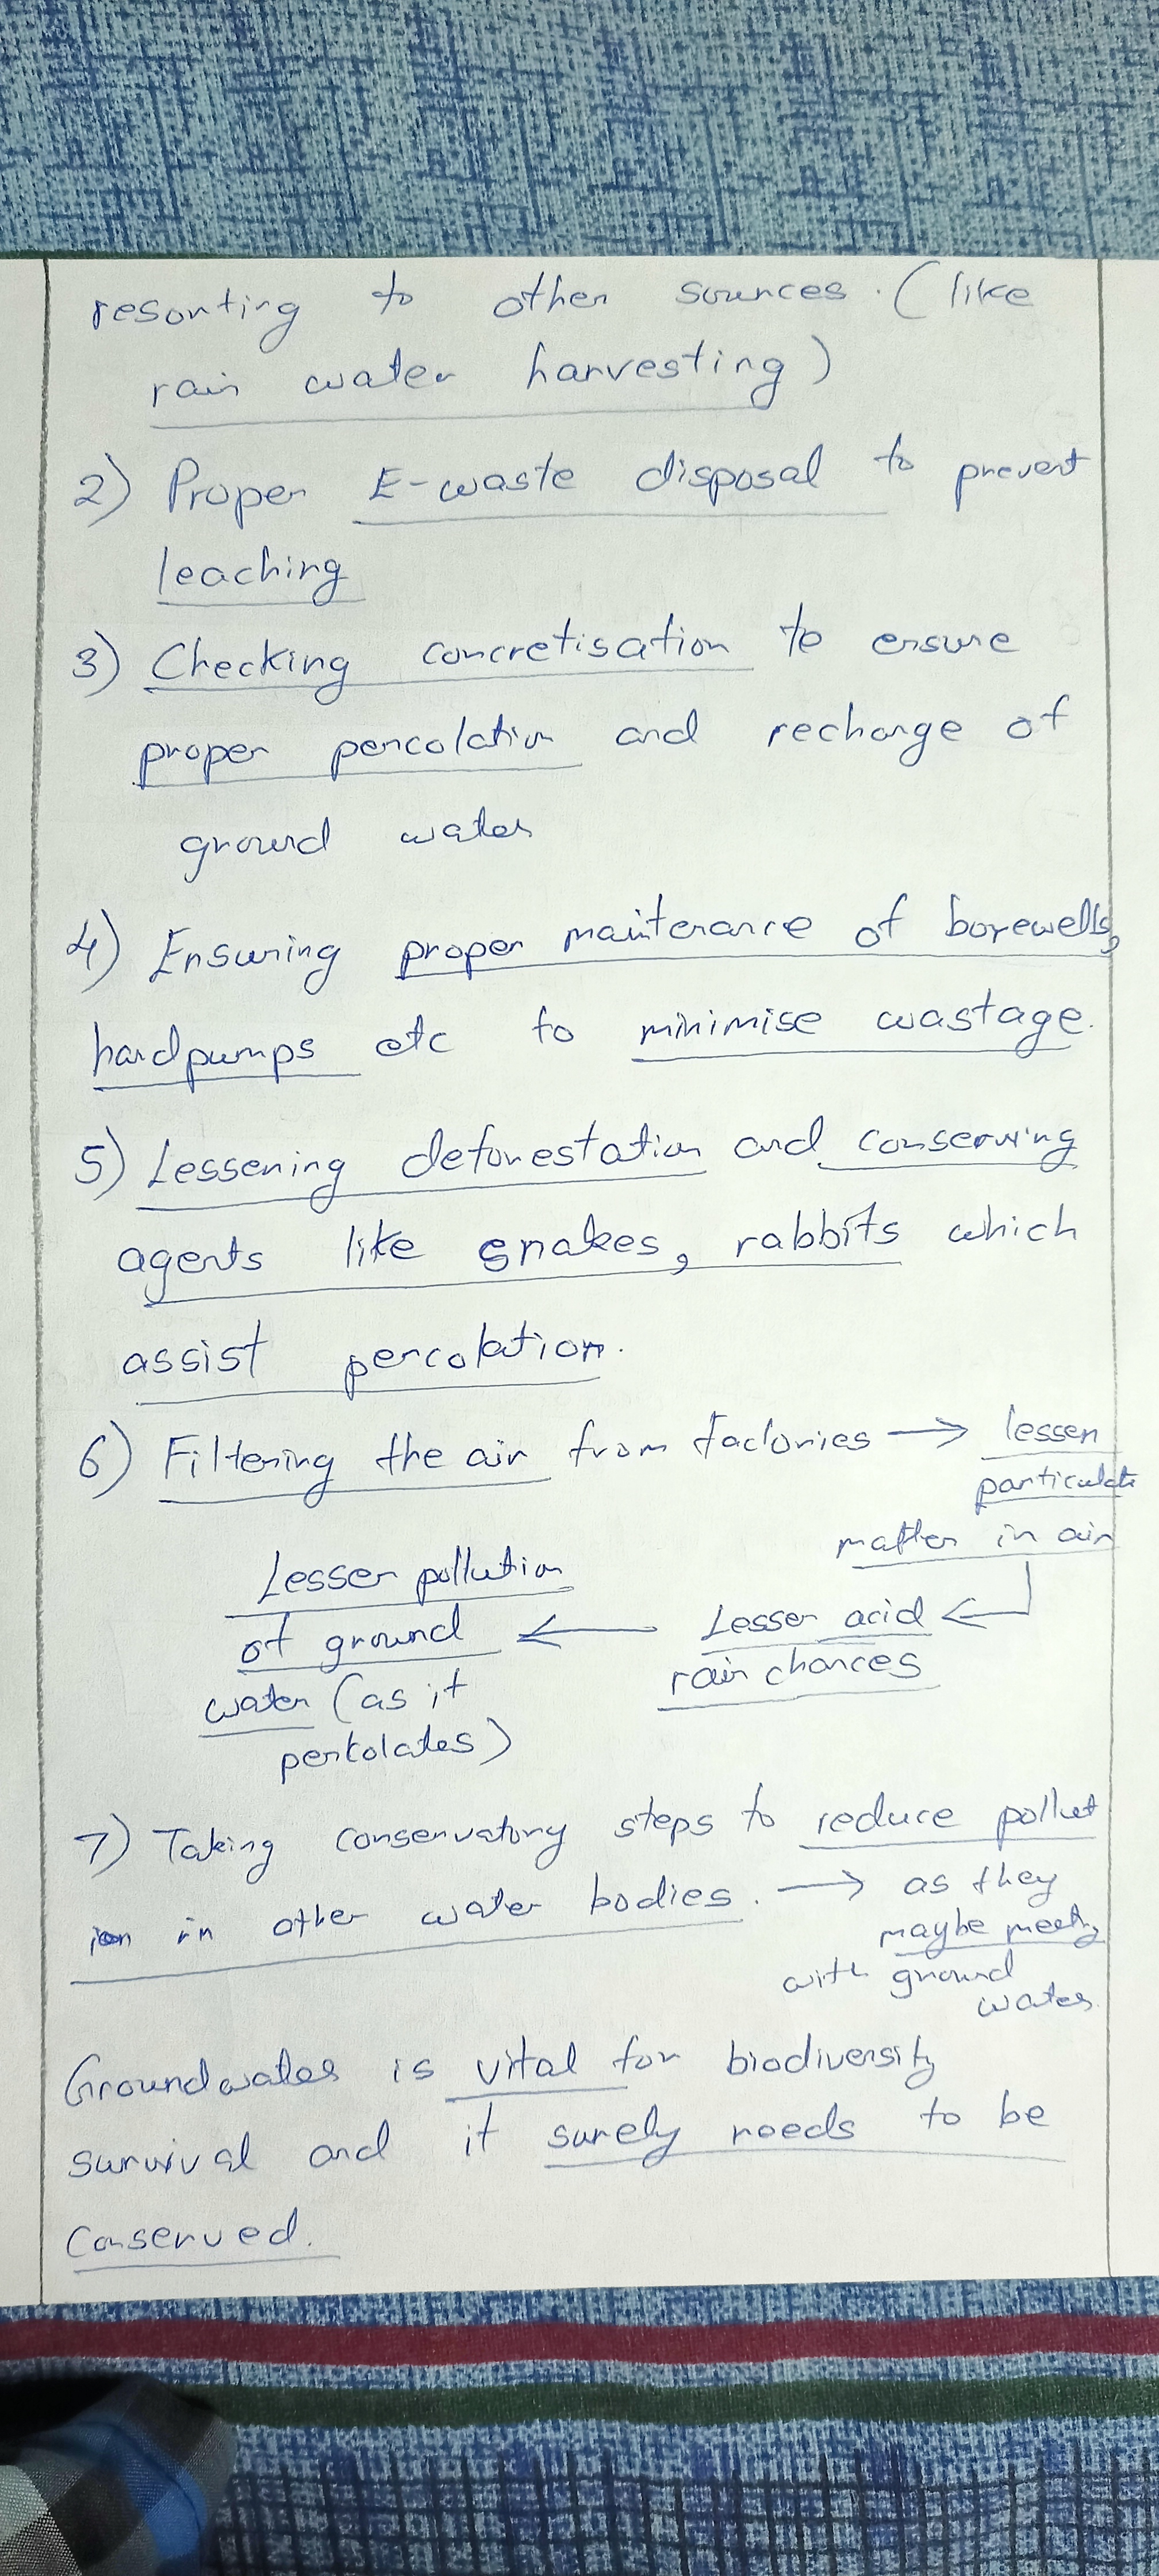 resorting to other sources. (like
rain water harvesting)
2) Proper E-waste disposal to prevent
leaching
3) Checking concretisation to ensure
proper percolation and recharge of
ground water
4) Ensuring proper maintenance of borewells,
handpumps etc to minimise wastage.
5) Lessening deforestation and conserving
agents like snakes, rabbits which
assist percolation.
6) Filtering the air from factories → lessen
particulate
matter in air
Lesser acid
rain chances
Lesser pollution
of ground
water (as it
perkolates)
7) Taking conservatory steps to reduce pollut
ion in other water bodies. → as they
maybe meeting
with ground
water.
Groundwater is vital for biodiversity
survival and it surely needs to be
conserved.